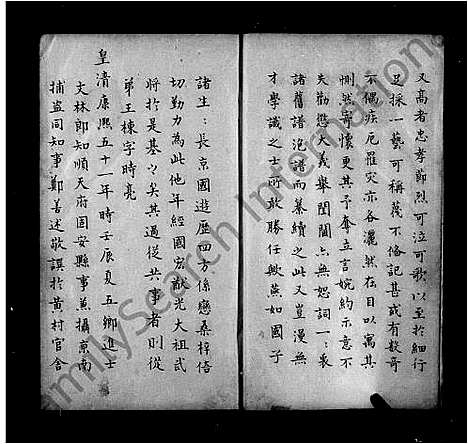 又高者忠孝節烈可泣可歌以至於細行
足採一藝可稱莫不備記甚或有數奇
不偶疾厄罹灾亦各灑然在目以寓其
惻然寄懷更其予奪立言婉約示意不
失勸懲大義舉闔闢亦無恕詞一喪
諸舊譜氾譜而纂續之此又豈漫無
才學識之士所敢勝任歟蕉如國子
諸生長京國遊歷四方係戀桑梓倍
切勤力為此他年經國宏猷光大祖武
將於是基之矣其過從共事者則從
弟王棟字時亮
皇清康熙五十一年時壬辰夏五鄉進士
文林郎知順天府固安縣事兼攝京南
捕盜同知事鄭善述敬譔於黃村官舍
FamilySearch International